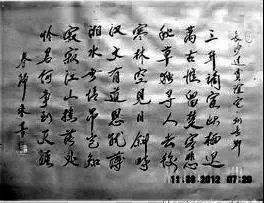 长沙过贾谊宅 刘长卿
三年谪宦此栖迟
万古惟留楚客悲
秋草独寻人去后
寒林空见日斜时
汉文有道恩犹薄
湘水无情吊岂知
寂寂江山摇落处
怜君何事到天涯
2012 07:20